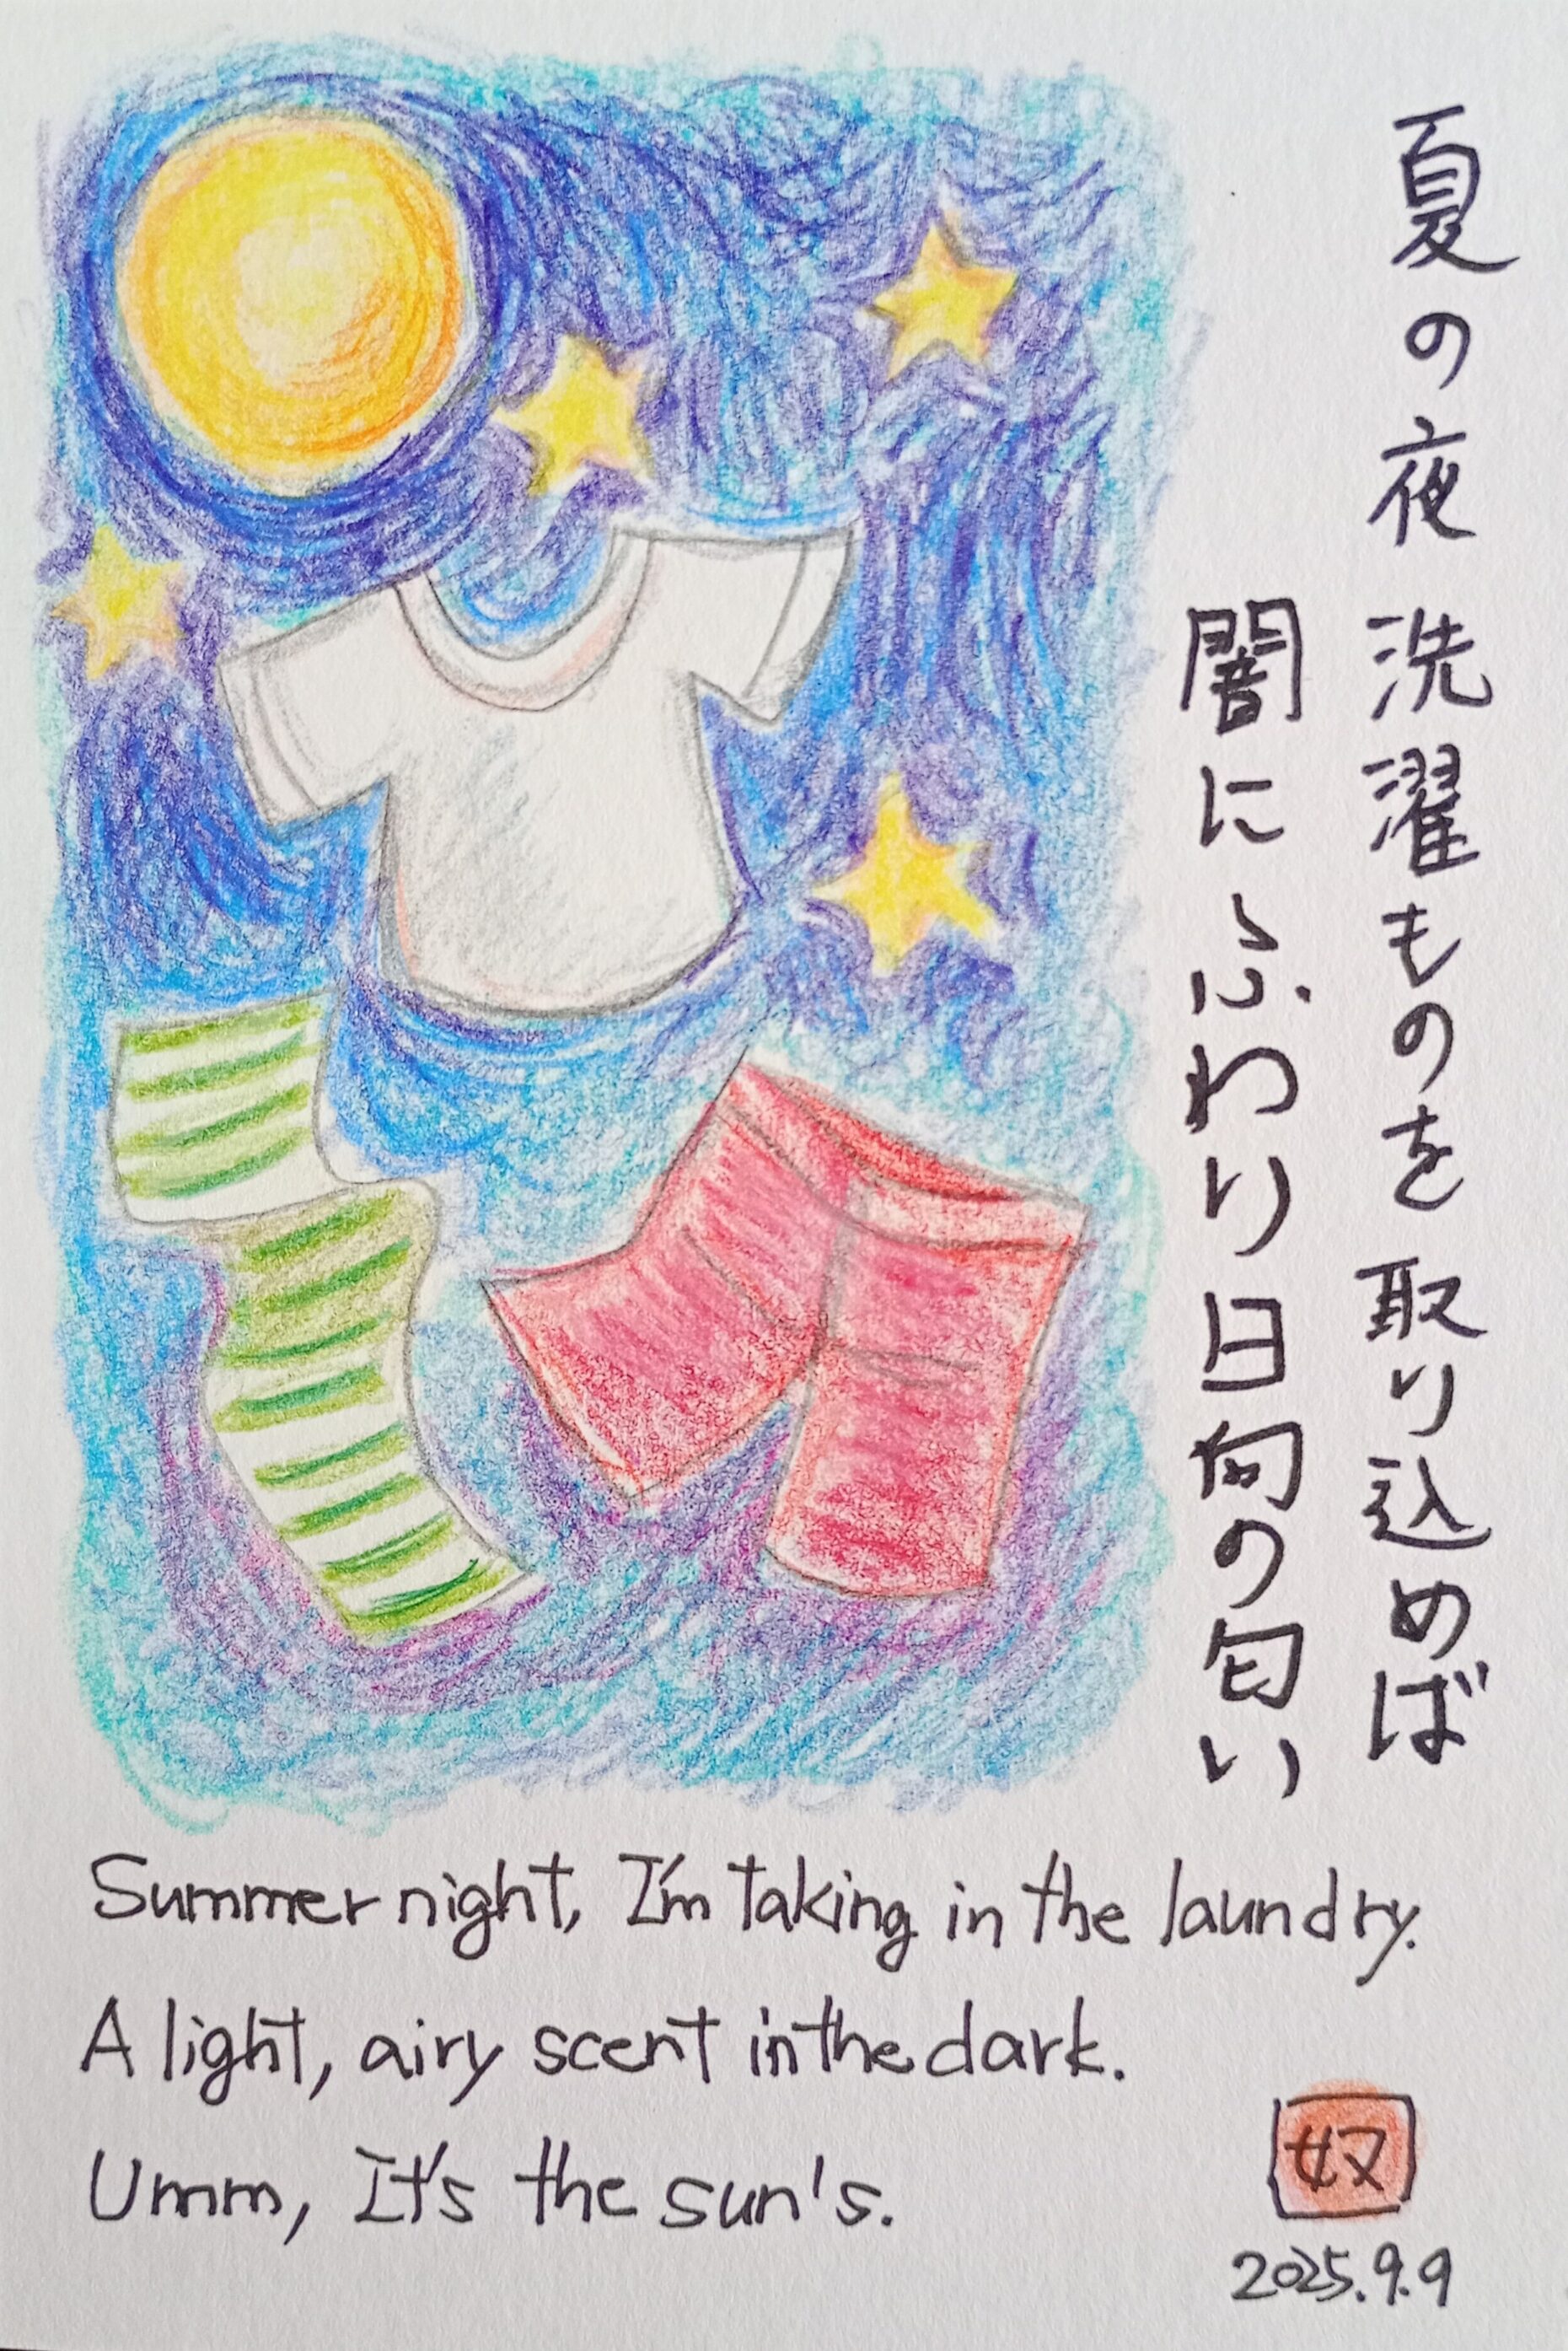 夏の夜 洗濯ものを 取り込めば
闇にふわり 日向の匂い
Summer night, I'm taking in the laundry.
A light, airy scent in the dark.
Umm, It's the sun's.
奴
2025.9.9